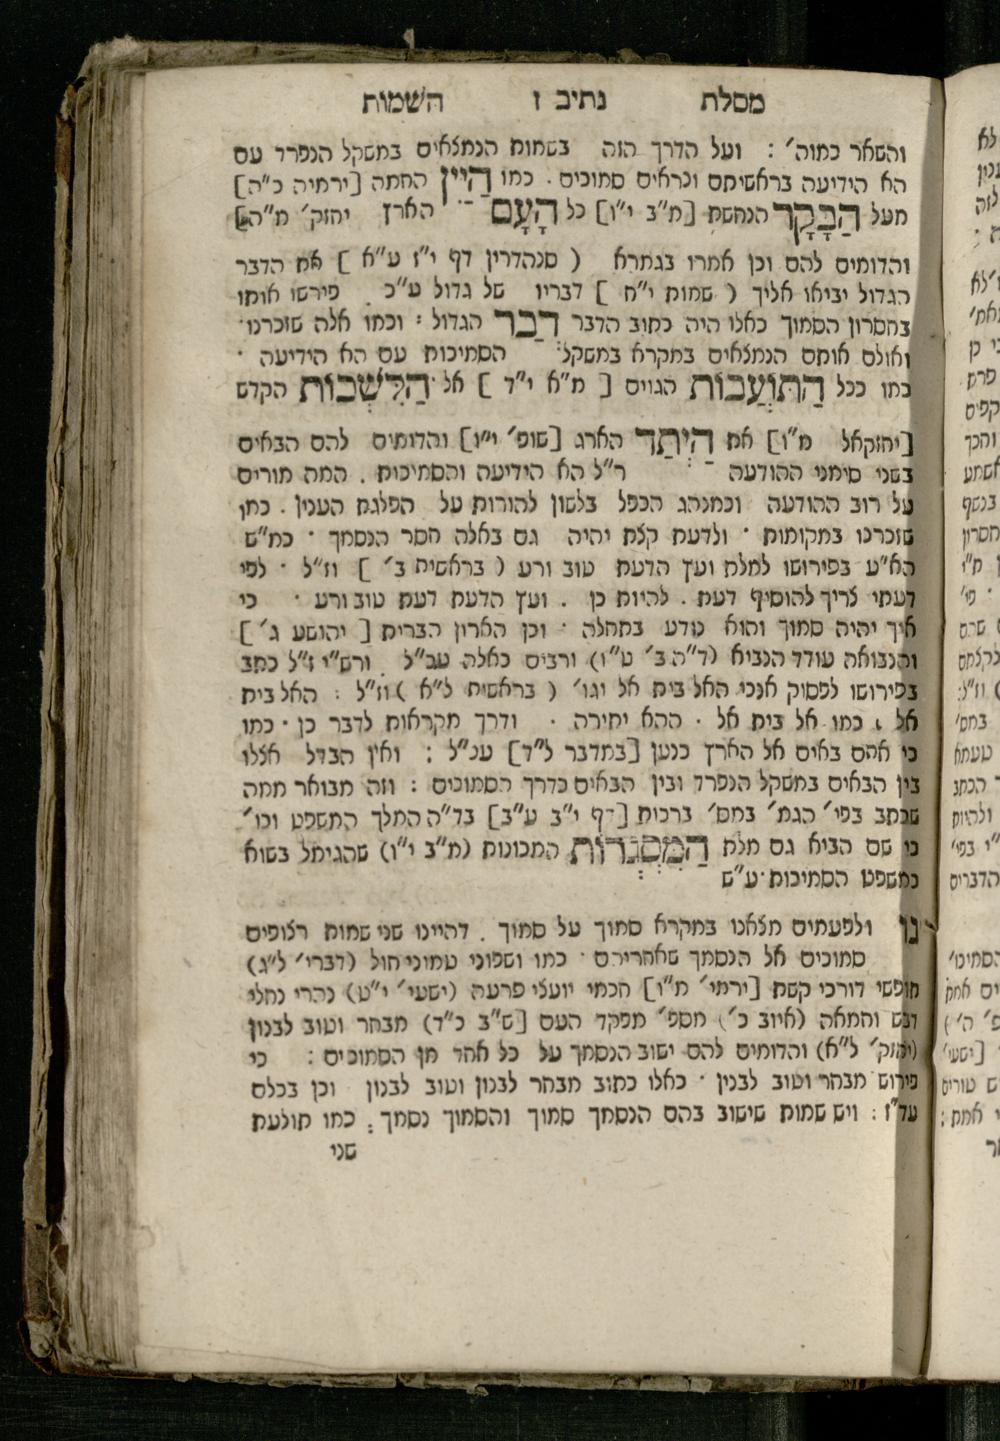 מסלת נתיב ז השמות
והשאר כמוה׳ : ועל הדרך הזה בשמות הנמצאים במשקל הנפרד עם
הא הידיעה בראשיתם ונראים סמוכים . כמו הַיַיִן החמה [ירמיה כ״ה]
מעל הַבָּקָר הנחשת [מ״ב י״ו] כל הָעָם הארץ יחזק׳ מ״ה]
והדומים להם וכן אמרו בגמרא ( סנהדרין דף י״ז ע״א ] את הדבר
הגדול יביאו אליך ( שמות י״ח ] דבריו של גדול ע״כ . פירשו אותו
בחסרון הסמוך כאלו היה כתוב הדבר דְבַר הגדול : וכמו אלה שזכרנו·
ואולם אותם הנמצאים במקרא במשקל הסמיכות עם הא הידיעה ·
כמו ככל הַתּוֹעֲבוֹת הגוים [ מ״א י״ד ] אל הַלִּשְׁכוֹת הקדש
[יחזקאל מ״ו] את הַיְתַד הארג [שופ׳ י״ו] והדומים להם הבאים
בשני סימני ההודעה ר״ל הא הידיעה והסמיכות . המה מורים
על רוב ההודעה וכמנהג הכפל בלשון להורות על הפלגת הענין . כמו
שזכרנו במקומות · ולדעת קצת יהיה גם באלה חסר הנסמך · כמ״ש
הא״ע בפירושו למלת ועץ הדעת טוב ורע ( בראשית ב׳ ] וז״ל · לפי
דעתי צריך להוסיף דעת . להיות כן . ועץ הדעת דעת טוב ורע · כי
איך יהיה סמוך והוא נודע בתחלה · וכן הארון הברית [ יהושע ג׳ ]
והנבואה עודד הנביא (ד״ה ב׳ ט״ו) ורבים כאלה עכ״ל . ורש״י ז״ל כתב
בפירושו לפסוק אנכי האל בית אל וגו׳ ( בראשית ל״א ) וז״ל : האל בית
אל . כמו אל בית אל · ההא יתירה · ודרך מקראות לדבר כן · כמו
כי אתם באים אל הארץ כנען [במדבר ל״ד] עכ״ל : ואין הבדל אצלו
בין הבאים במשקל הנפרד ובין הבאים כדרך הסמוכים : וזה מבואר ממה
שכתב בפי׳ הגמ׳ במס׳ ברכות [דף י״ב ע״ב] בד״ה המלך המשפט וכו׳
כי שם הביא גם מלת הַמִּסְגְּרוֹת המכונות (מ״ב י״ו) שהגימל בשוא
כמשפט הסמיכות ע״ש :
נו ולפעמים מצאנו במקרא סמוך על סמוך . דהיינו שני שמות רצופים
סמוכים אל הנסמך שאחריהם · כמו ושפוני טמוני חול (דברי׳ ל״ג)
תופשי דורכי קשת [ירמי׳ מ״ו] חכמי יועצי פרעה (ישעי׳ י״ט) נהרי נחלי
דבש וחמאה (איוב כ׳) מספ׳ מפקד העם [ש״ב כ״ד) מבחר וטוב לבנון
(יחזק׳ ל״א) והדומים להם ישוב הנסמך על כל אחד מן הסמוכים : כי
פירוש מבחר וטוב לבנין · כאלו כתוב מבחר לבנון וטוב לבנון וכן בכלם
עד״ז : ויש שמות שישוב בהם הנסמך סמוך והסמוך נסמך : כמו תולעת
שני